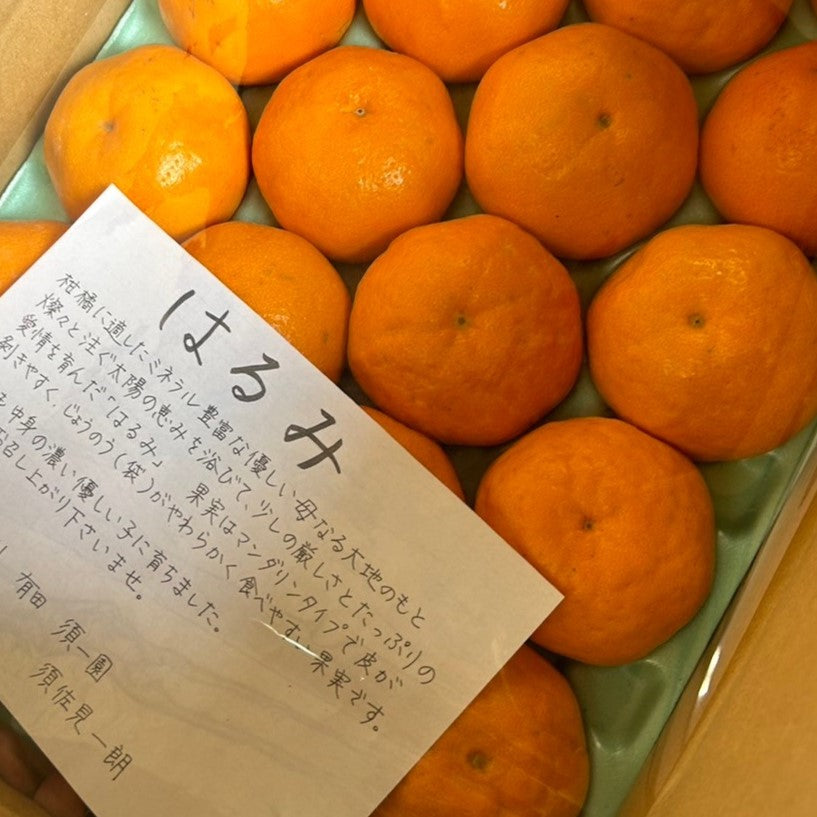 はるみ
柑橘に適したミネラル豊富な優しい母なる大地のもと
燦々と注ぐ太陽の恵みを浴びて、少しの厳しさとたっぷりの
愛情を育んだ「はるみ」 果実はマンダリンタイプで皮が
剥きやすく、じょうのう(袋)がやわらかく食べやすい果実です。
中身の濃い優しい子に育ちました。
召し上がり下さいませ。
有田 須一園
須佐見一朗